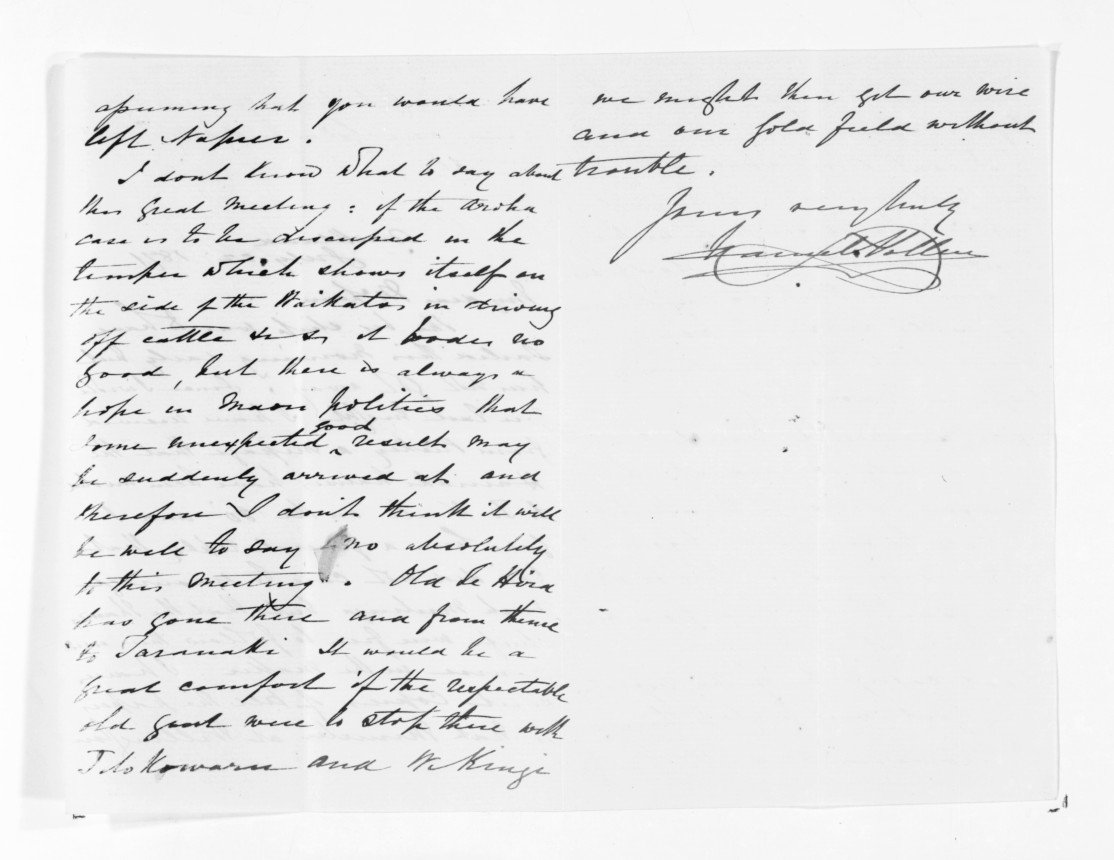 assuming that you would have
left Napier.
I dont know what to say about
this great meeting: if the Aroha
case is to be discussed in the
temper which shows itself on
the side of the Waikatos in driving
off cattle &c &c it bodes no
good, but there is always a
hope in Maori politics that
some unexpected good result may
be suddenly arrived at and
therefore I don't think it will
be well to say no absolutely
to this meeting. Old Te Hira
has gone there and from thence
to Taranaki It would be a
great comfort if the respectable
old gent were to stop there with
Titokowaru and W. Kingi
we might then get our wire
and our gold field without
trouble.
Yours very truly
Daniel Pollen